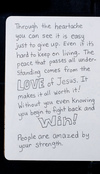 Through the heartache
you can see it is easy
just to give up. Even if its
hard to keep on living. The
peace that passes all under-
standing comes from the
LOVE of Jesus. It
makes it all worth it!
Without you even knowing
you begin to fight back and
Win!
People are amazed by
your strength.